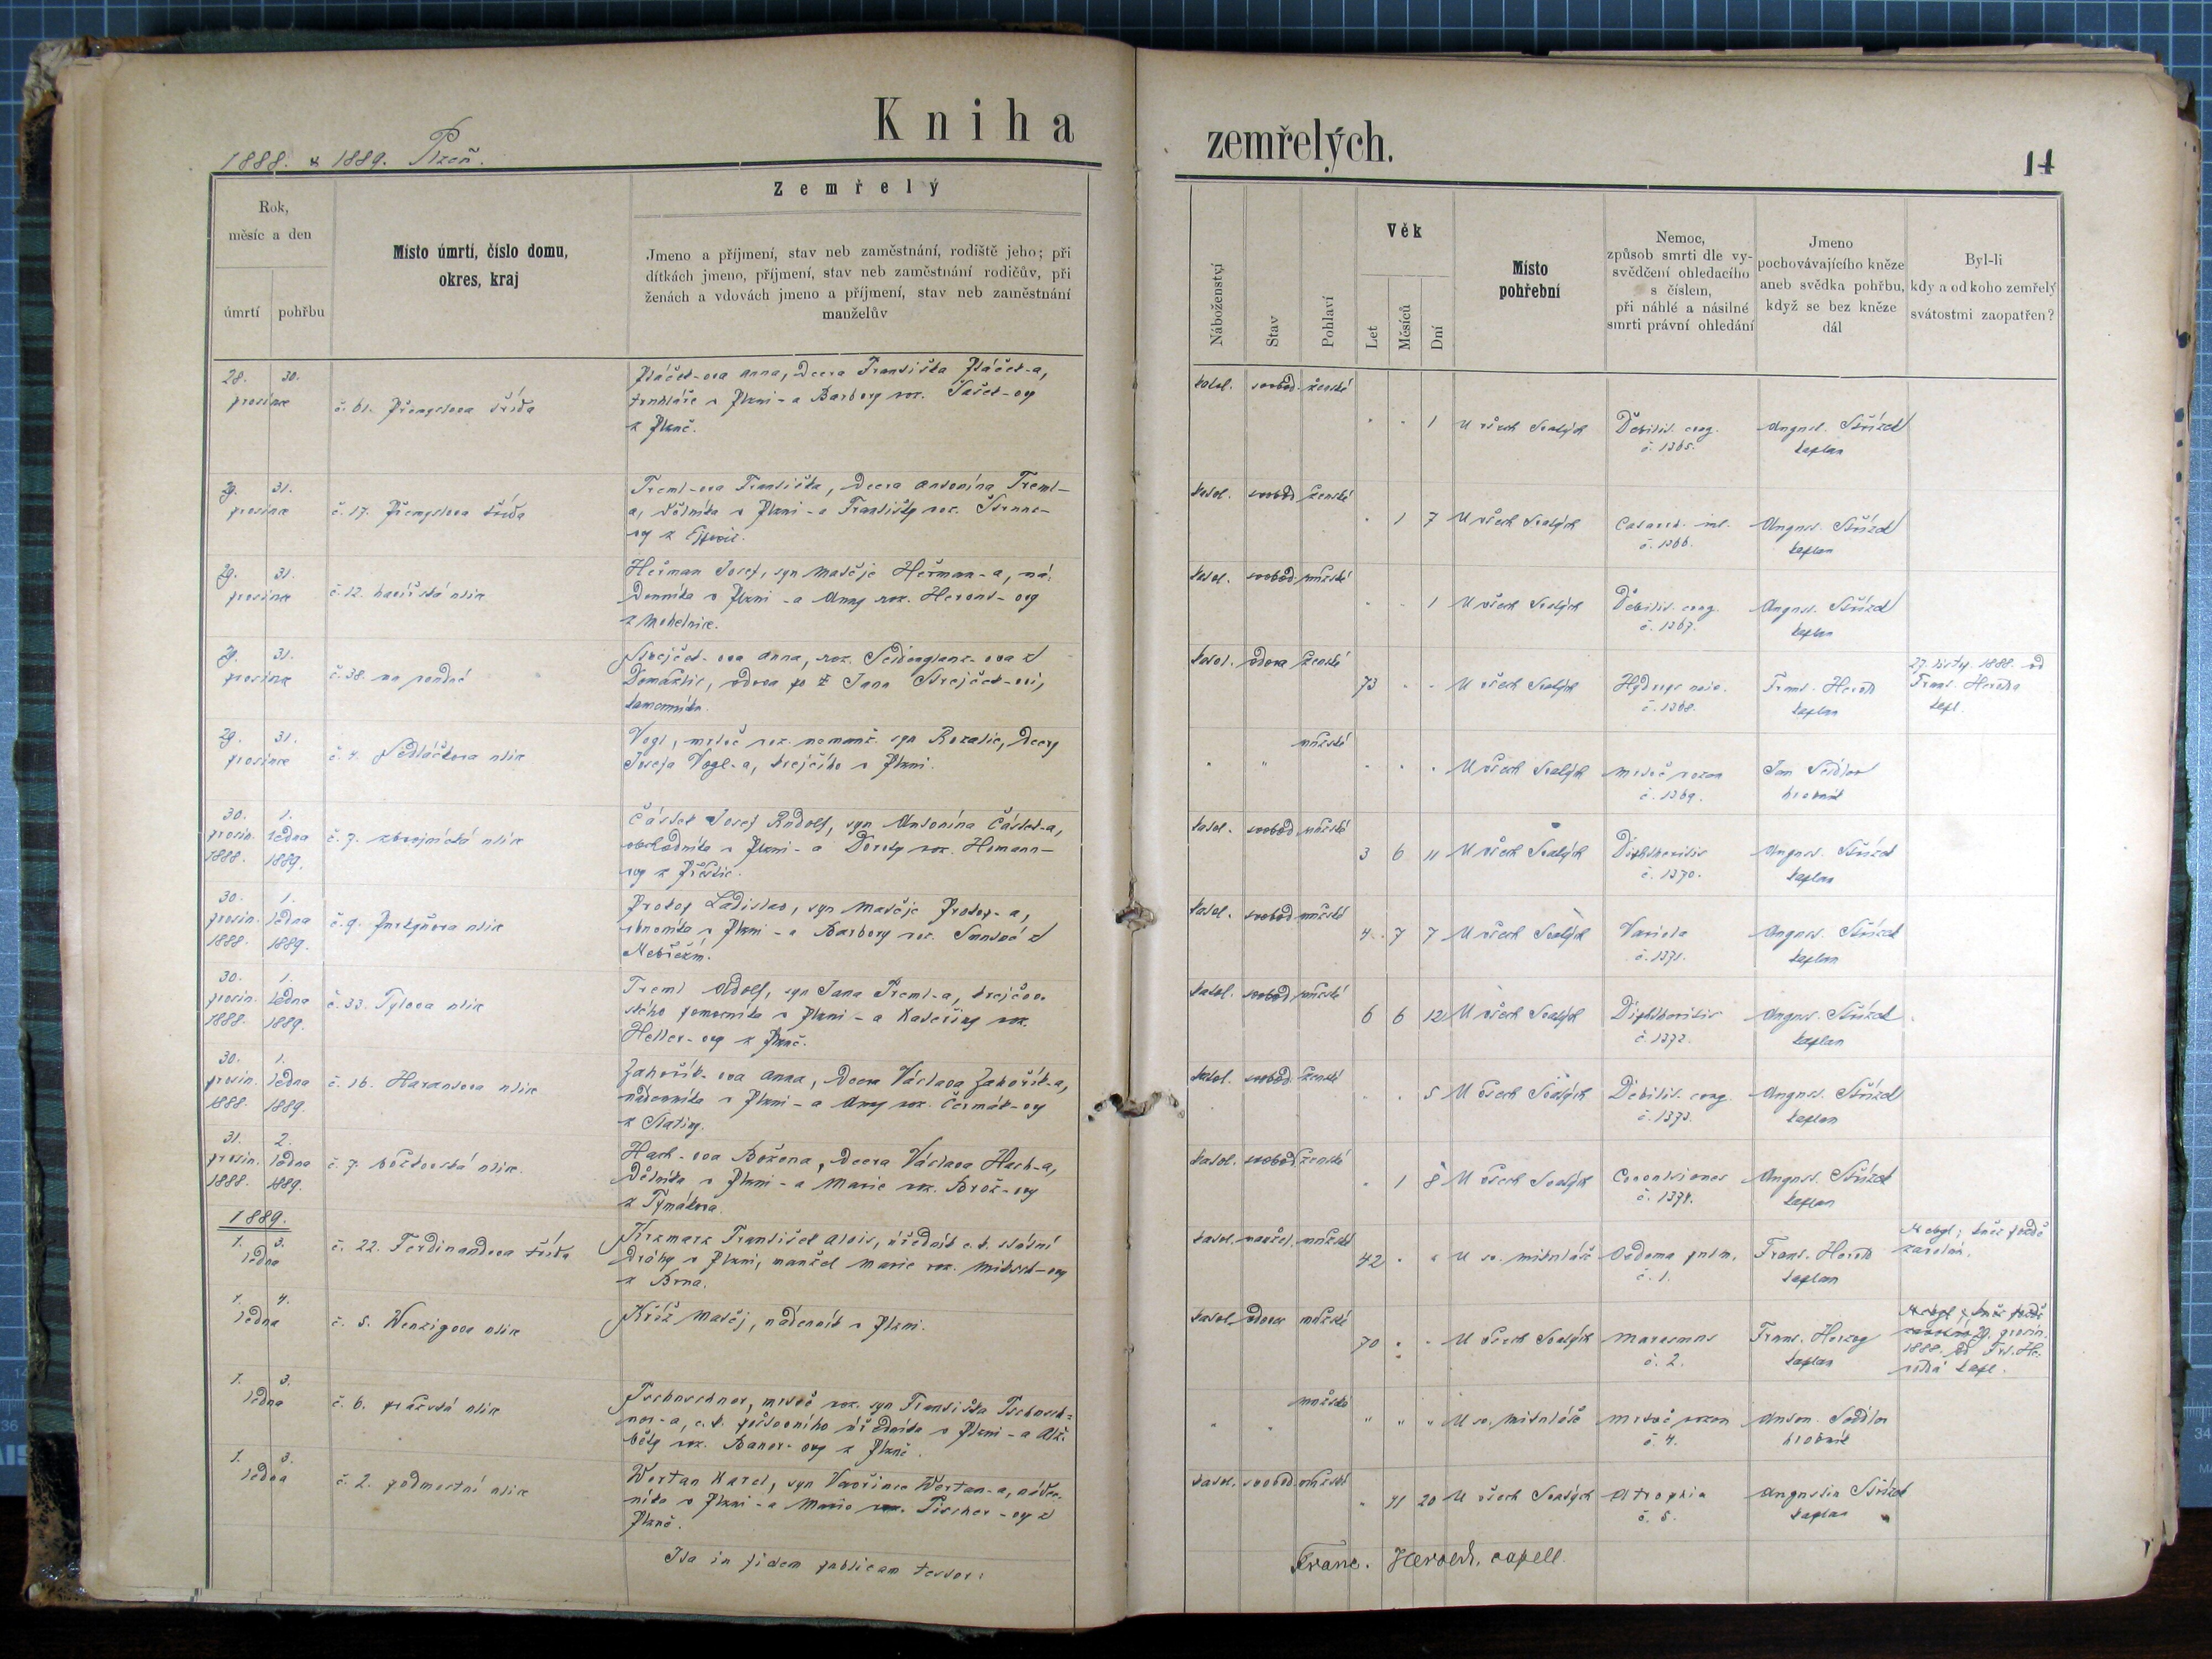 Kniha
zemřelých.
1888. & 1889. Plzeň.
14
Zemřelý
Rok,
měsíc a den
úmrtí
pohřbu
Místo úmrtí, číslo domu,
okres, kraj
Jmeno a příjmení, stav neb zaměstnání, rodiště jeho; při
dítkách jmeno, příjmení, stav neb zaměstnání rodičův, při
ženách a vdovách jmeno a příjmení, stav neb zaměstnání
manželův
Náboženství
Stav
Pohlaví
Věk
Let
Měsíců
Dní
Místo
pohřební
Nemoc,
způsob smrti dle vy-
svědčení ohledacího
s číslem,
při náhlé a násilné
smrti právní ohledání
Jmeno
pochovávajícího kněze
aneb svědka pohřbu,
když se bez kněze
dál
Byl-li
kdy a od koho zemřelý
svátostmi zaopatřen?
28. 30.
prosince
č. 61. Přemyslova třída
Ptáček-ova Anna, dcera Františka Ptáček-a,
truhláře v Plzni - a Barbory roz. Vašek-ovy
z Plzně.
katol. svobod. ženské
1 U všech Svatých
Debilit. cong.
č. 1365.
August. Střízek
kaplan
29. 31.
prosince
č. 17. Přemyslova třída
Treml-ova Františka, dcera Antonína Treml-
a, dělníka v Plzni - a Františky roz.
katol. svobod ženské
1 7 U všech Svatých
č. 1366.
August. Střízek
kaplan
29. 31.
prosince
č. 12. havířská ulice
Heřman Josef, syn Matěje Heřman-a, ná-
denníka v Plzni - a Anny roz.
z Mohelnice.
katol. svobod. mužské
1 U všech Svatých
Debilit. cong.
č. 1367.
August. Střízek
kaplan
29. 31.
prosince
č. 38. na rondně
Strejček-ova Anna, roz.
Domažlic, vdova po † Janu Strejček-ovi,
kameníka.
katol. vdova ženské
73 U všech Svatých
č. 1368.
Frant. Herold
kaplan
27. listop. 1888. od
Frant. Herolda
kapl.
29. 31.
prosince
č. 4. Sedláčkova ulice
Vogl, mrtvě roz. nemanž. syn Rozalie, dcery
Josefa Vogl-a, krejčího v Plzni.
mužské
U všech Svatých
mrtvě rozen
č. 1369.
Jan Seidler
hrobník
30. 1.
prosin. ledna
1888. 1889.
č. 7. zbrojnická ulice
Částek Josef Rudolf, syn Antonína Částek-a,
obchodníka v Plzni - a Doroty roz. Hemann-
ovy z Přeštic.
katol. svobod. mužské
3 6 11 U všech Svatých
Diphtheritis
č. 1370.
August. Střízek
kaplan
30. 1.
prosin. ledna
1888. 1889.
č. 9. Purkyňova ulice
Prokop Ladislav, syn Matěje Prokop-a,
v Plzni - a Barbory roz.
katol. svobod mužské
4 7 7 U všech Svatých
Variola
č. 1371.
August. Střízek
kaplan
30. 1.
prosin. ledna
1888. 1889.
č. 33. Tylova ulice
Treml Adolf, syn Jana Treml-a, krejčov-
ského pomocníka v Plzni - a Kateřiny roz.
Heller-ovy z Plzně.
katol. svobod mužské
6 6 12 U všech Svatých
Diphtheritis
č. 1372.
August. Střízek
kaplan
30. 1.
prosin. ledna
1888. 1889.
č. 16. Harantova ulice
Zahořík-ova Anna, dcera Václava Zahořík-a,
nádenníka v Plzni - a Anny roz. Čermák-ovy
katol. svobod. ženské
5 U všech Svatých
Debilit. cong.
č. 1373.
August. Střízek
kaplan
31. 2.
prosin. ledna
1888. 1889.
č. 7. ulice
Hach-ova Božena, dcera Václava Hach-a,
dělníka v Plzni - a Marie roz. Brož-ovy
z Tymákova.
katol. svobod ženské
1 8 U všech Svatých
Convulsiones
č. 1374.
August. Střízek
kaplan
1889.
1. 3.
ledna
č. 22. Ferdinandova třída
Krzmarz František Alois, úředník c. k. státní
dráhy v Plzni, manžel Marie roz.
z Brna.
katol. manžel. mužské
42 U sv. Mikuláše
Oedema pulm.
č. 1.
Frant. Herold
kaplan
Nebyl; kněz pozdě
zavolán.
1. 4.
ledna
č. 5. Wenzigova ulice
Kříž Matěj, nádenník v Plzni.
katol. vdovec mužské
70 U všech Svatých
Marasmus
č. 2.
Frant. Herzog
kaplan
Nebyl; kněz pozdě
zavolán 29. prosin.
1888. od Frt. He-
rolda kapl.
1. 3.
ledna
č. 6. pražská ulice
Tschuschner, mrtvě roz. syn Františka Tschusch-
ner-a, c. k. poštovního úředníka v Plzni - a Alž-
běty roz. Bauer-ovy z Plzně.
mužské
U sv. Mikuláše
mrtvě rozen
č. 4.
hrobník
1. 3.
ledna
č. 2. podmostní ulice
Wortan Karel, syn Vavřince Wortan-a, náden-
níka v Plzni - a Marie roz. Fischer-ovy z
Plzně.
katol. svobod. mužské
11 20 U všech Svatých
Atrophia
č. 5.
Augustin Střízek
kaplan
Ita in fidem publicam testor:
Franc. Herold, capell.